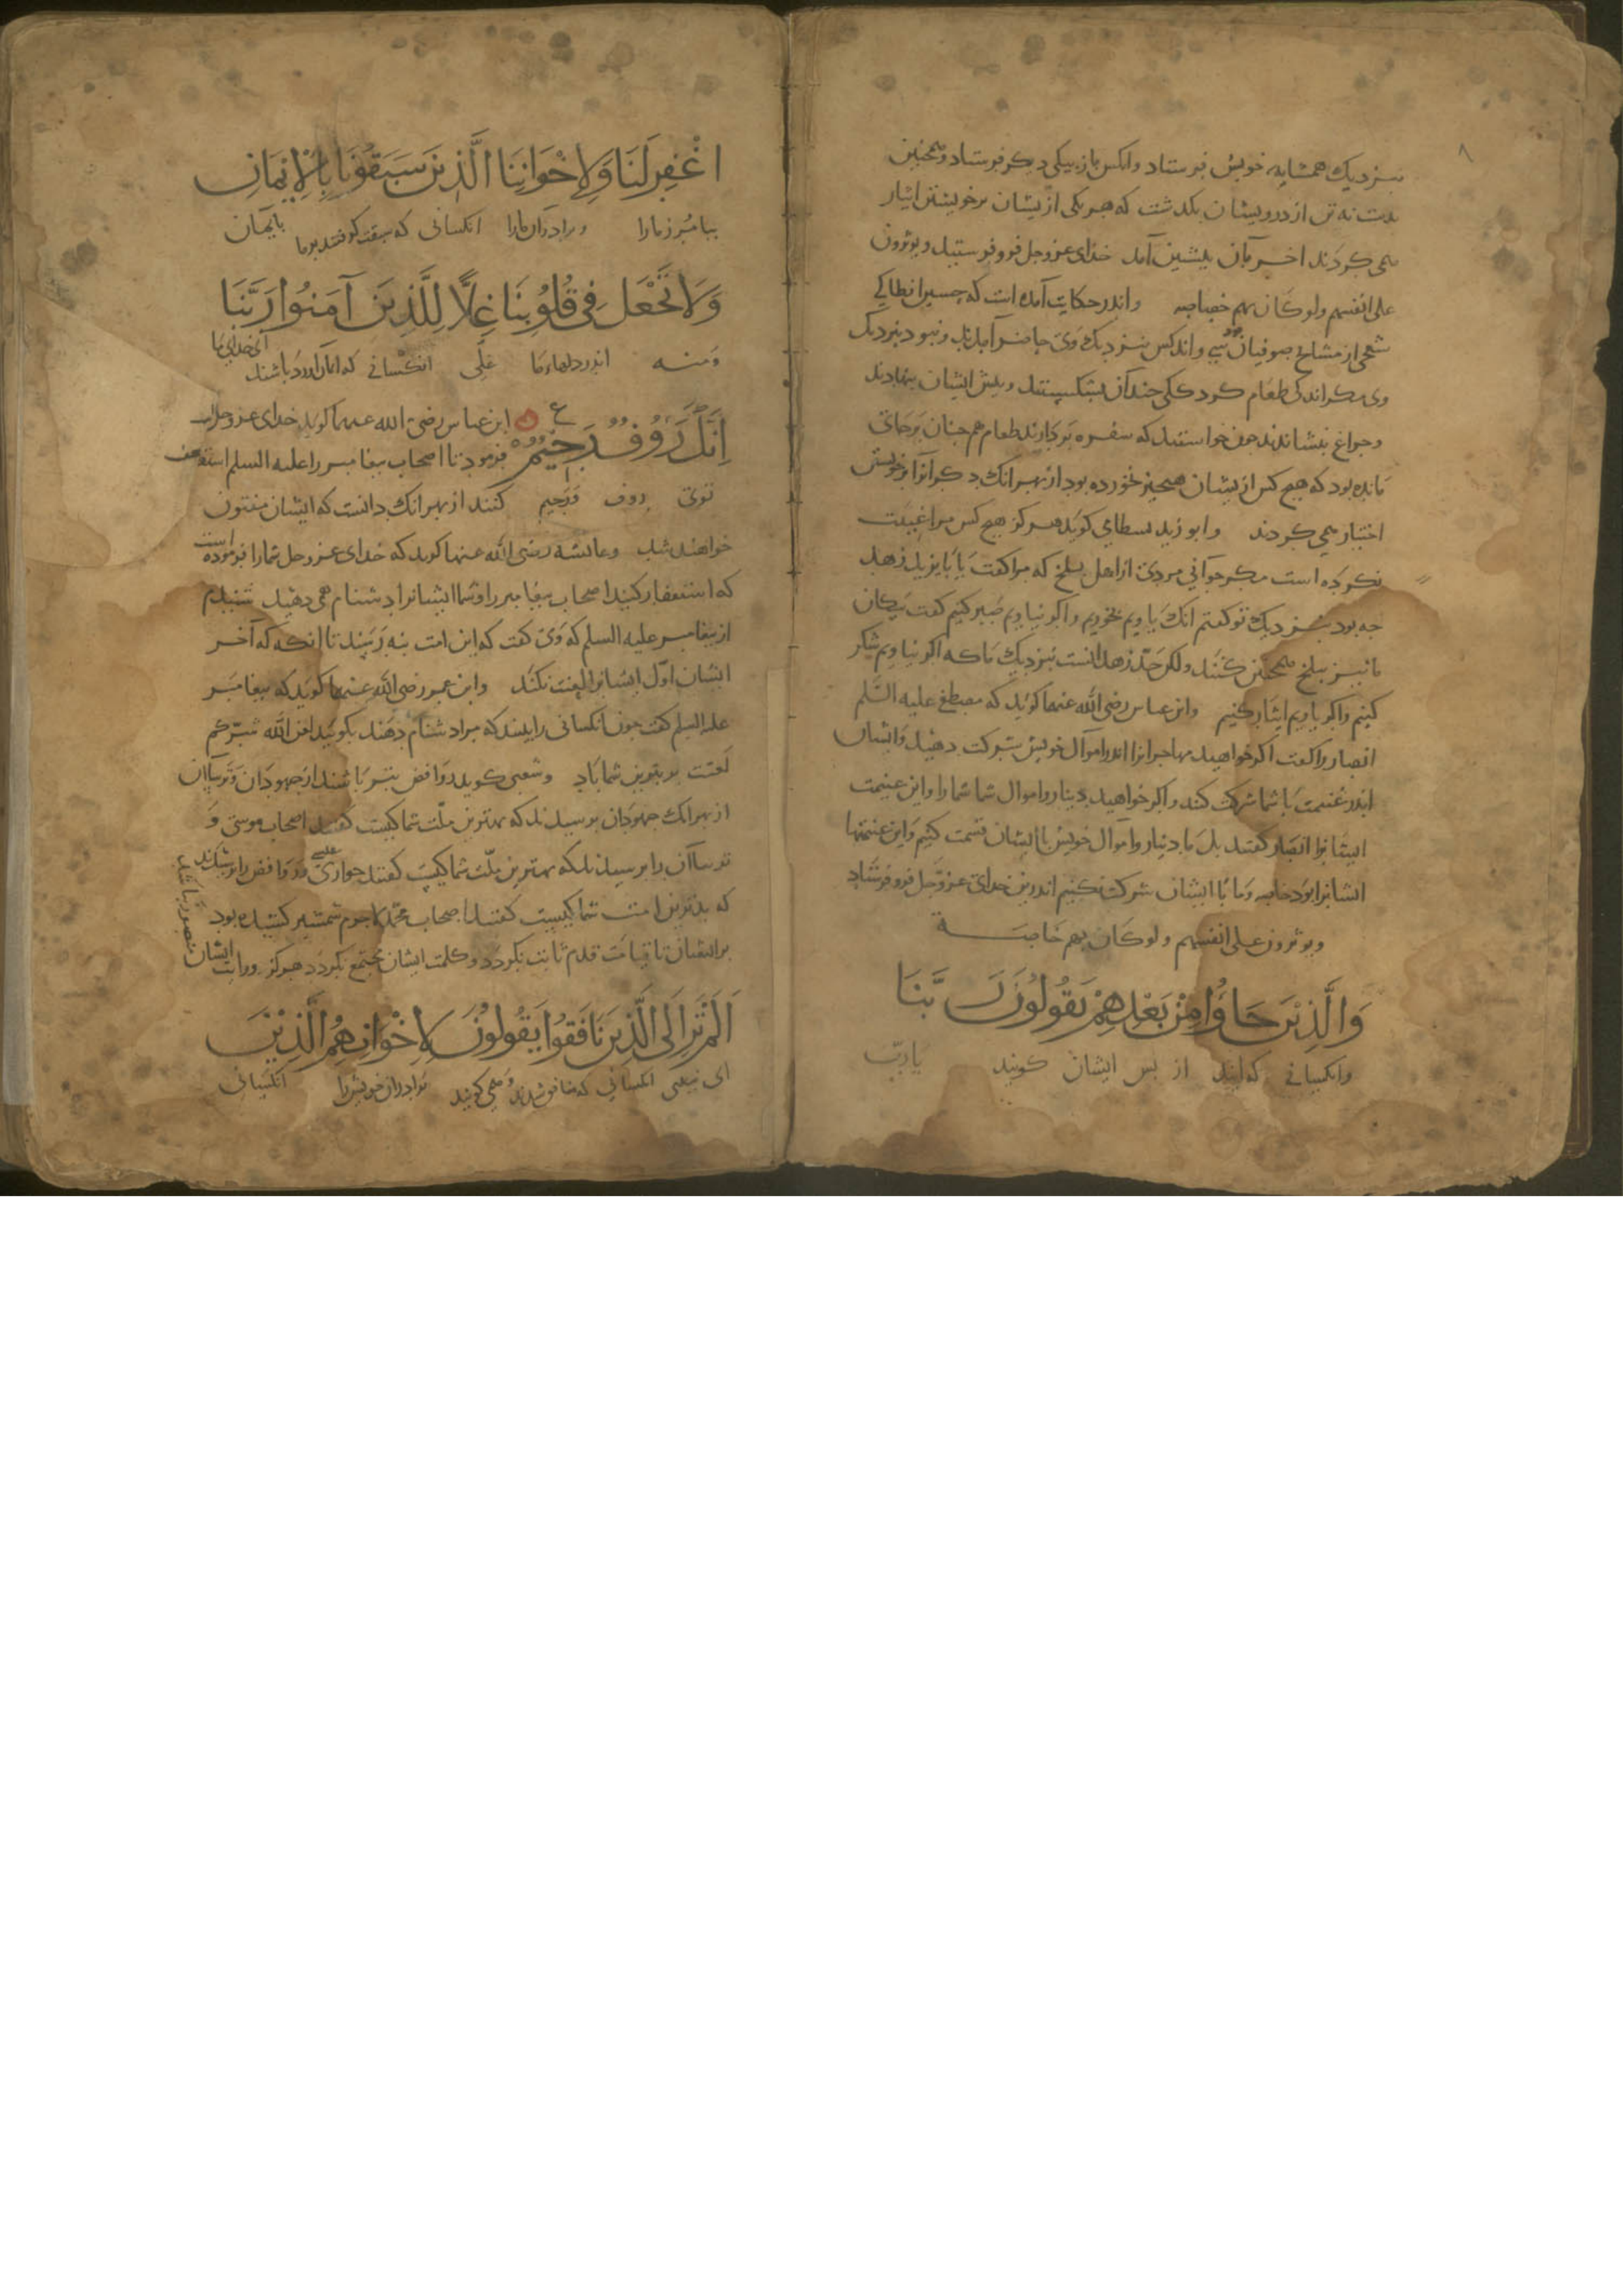 ۸
نزدیک همسایه خویش فرستاد وانکس باز بیکی دیکر فرستاد وهمچنین
بدست نه تن از درویشان بکذشت که هر یکی ازیشان بر خویشتن ایثار
همی کردند اخر بآن پیشین آمد خدای عزوجل فرو فرستید ویوثرون
علی انفسهم ولو کان بهم خصاصه واندر حکایت آمده است که حسین انطاکی
از مشایخ صوفیان سی واند کس نزدیک وی حاضر آمدند ونبود نزدیک
وی مکر اندکی طعام کرد کی چند آن بشکستند وپیش ایشان بنهادند
وچراغ بنشاندند چون خواستند که سفره بردارند طعام هم چنان برجای
مانده بود که هیچ کس ازیشان هیچیز نخورده بود از بهر انک دکر آنرا بر خویش
اختیار همی کردند وابو زید بسطامی کوید هرکز هیچ کس مرا غیبت
نکرده است مکر جوآنی مردی از اهل بلخ که مرا کفت یا بایزید زهد
چه بود بنزدیک تو کفتم انک یاویم بخوریم واکر نیاویم صبر کنیم کفت سکان
ما نیز ببلخ همچنین کنند ولکن حدّ زهد انست بنزدیک ما که اکر نیاویم شکر
کنیم واکر یاویم ایثار کنیم وابن عباس رضی الله عنهما کوید که مصطفی علیه السّلم
انصار را کفت اکر خواهید مهاجرانرا اندر اموال خویش شرکت دهید وایشان
اندر غنیمت با شما شرکت کنند واکر خواهید دینار واموال شما شما را واین غنیمت
ایشانرا انصار کفتند بل ما دینار واموال خویش با ایشان قسمت کنیم واین غنیمتها
ایشانرا بود خاصه وما با ایشان شرکت نکنیم اندرین خدای عزوجل فرو فرستاد
ویوثرون علی انفسهم ولو کان بهم خاصة
وَالَّذِیْنَ جَاؤُا مِنْ بَعْدِهِمْ یَقُولُونَ رَبَّنَا
وانکسانی که آیند از پس ایشان کویند یا ربّ
اغْفِرْ لَنَا وَلِاِخْوَانِنَا الَّذِینَ سَبَقُونَا بِالْاِیْمَانِ
بیامرز ما را وبرادران ما را انکسانی که سبقت کرفتند بر ما بایمان
وَلَا تَجْعَل فِی قُلُوْبِنَا غِلًّا لِلَّذِینَ آمَنُوا رَبَّنَا
ومنه اندر دلهاء ما غلّی انکسانی که ایمان اورده باشند ای خدای ما
اِنَّكَ رَؤُوفٌ رَحِیْمٌ ابن عباس رضی الله عنهما کوید خدای عزوجل
فرمود تا اصحاب پیغامبر را علیه السلم استغفار
توی روف ورحیم کنند از بهر انک دانست که ایشان مفتون
خواهند شد وعایشه رضی الله عنها کوید که خدای عزوجل شما را فرموده است
که استغفار کنید اصحاب پیغامبر را وشما ایشانرا دشنام همی دهید شنیدم
از پیغامبر علیه السلم که وی کفت که این امت بنه رسند تا انکه که آخر
ایشان اوّل ایشانرا لعنت نکند وابن عمر رضی الله عنهما کوید که پیغامبر
علیه السلم کفت چون انکسانی را بیند که مرا دشنام دهند بکویید لعن الله شرّکم
لعنت بر بترین شما باد وشعبی کوید روافض بتر باشند از جهودان وترساآن
از بهر انک جهودان پرسیدند که بهترین ملّت شما کیست کفتند اصحاب موسی و
ترساآن را پرسیدند که بهترین ملّت شما کیست کفتند حواری عیسی وروافض را پرسیدند
که بدترین امت شما کیست کفتند اصحاب محمّد لاجرم شمشیر کشیده بود
بر ایشان تا قیامت قدم ثابت نکردد وکلمت ایشان مجتمع نکردد هرکز ورایت ایشان
منصور نباشد
اَلَمْ تَرَ اِلَی الَّذِینَ نَافَقُوا یَقُولُونَ لِاِخْوَانِهِمُ الَّذِیْنَ
ای نبینی انکسانی که منافق شدند وهمی کویند برادران خویش را انکسانی